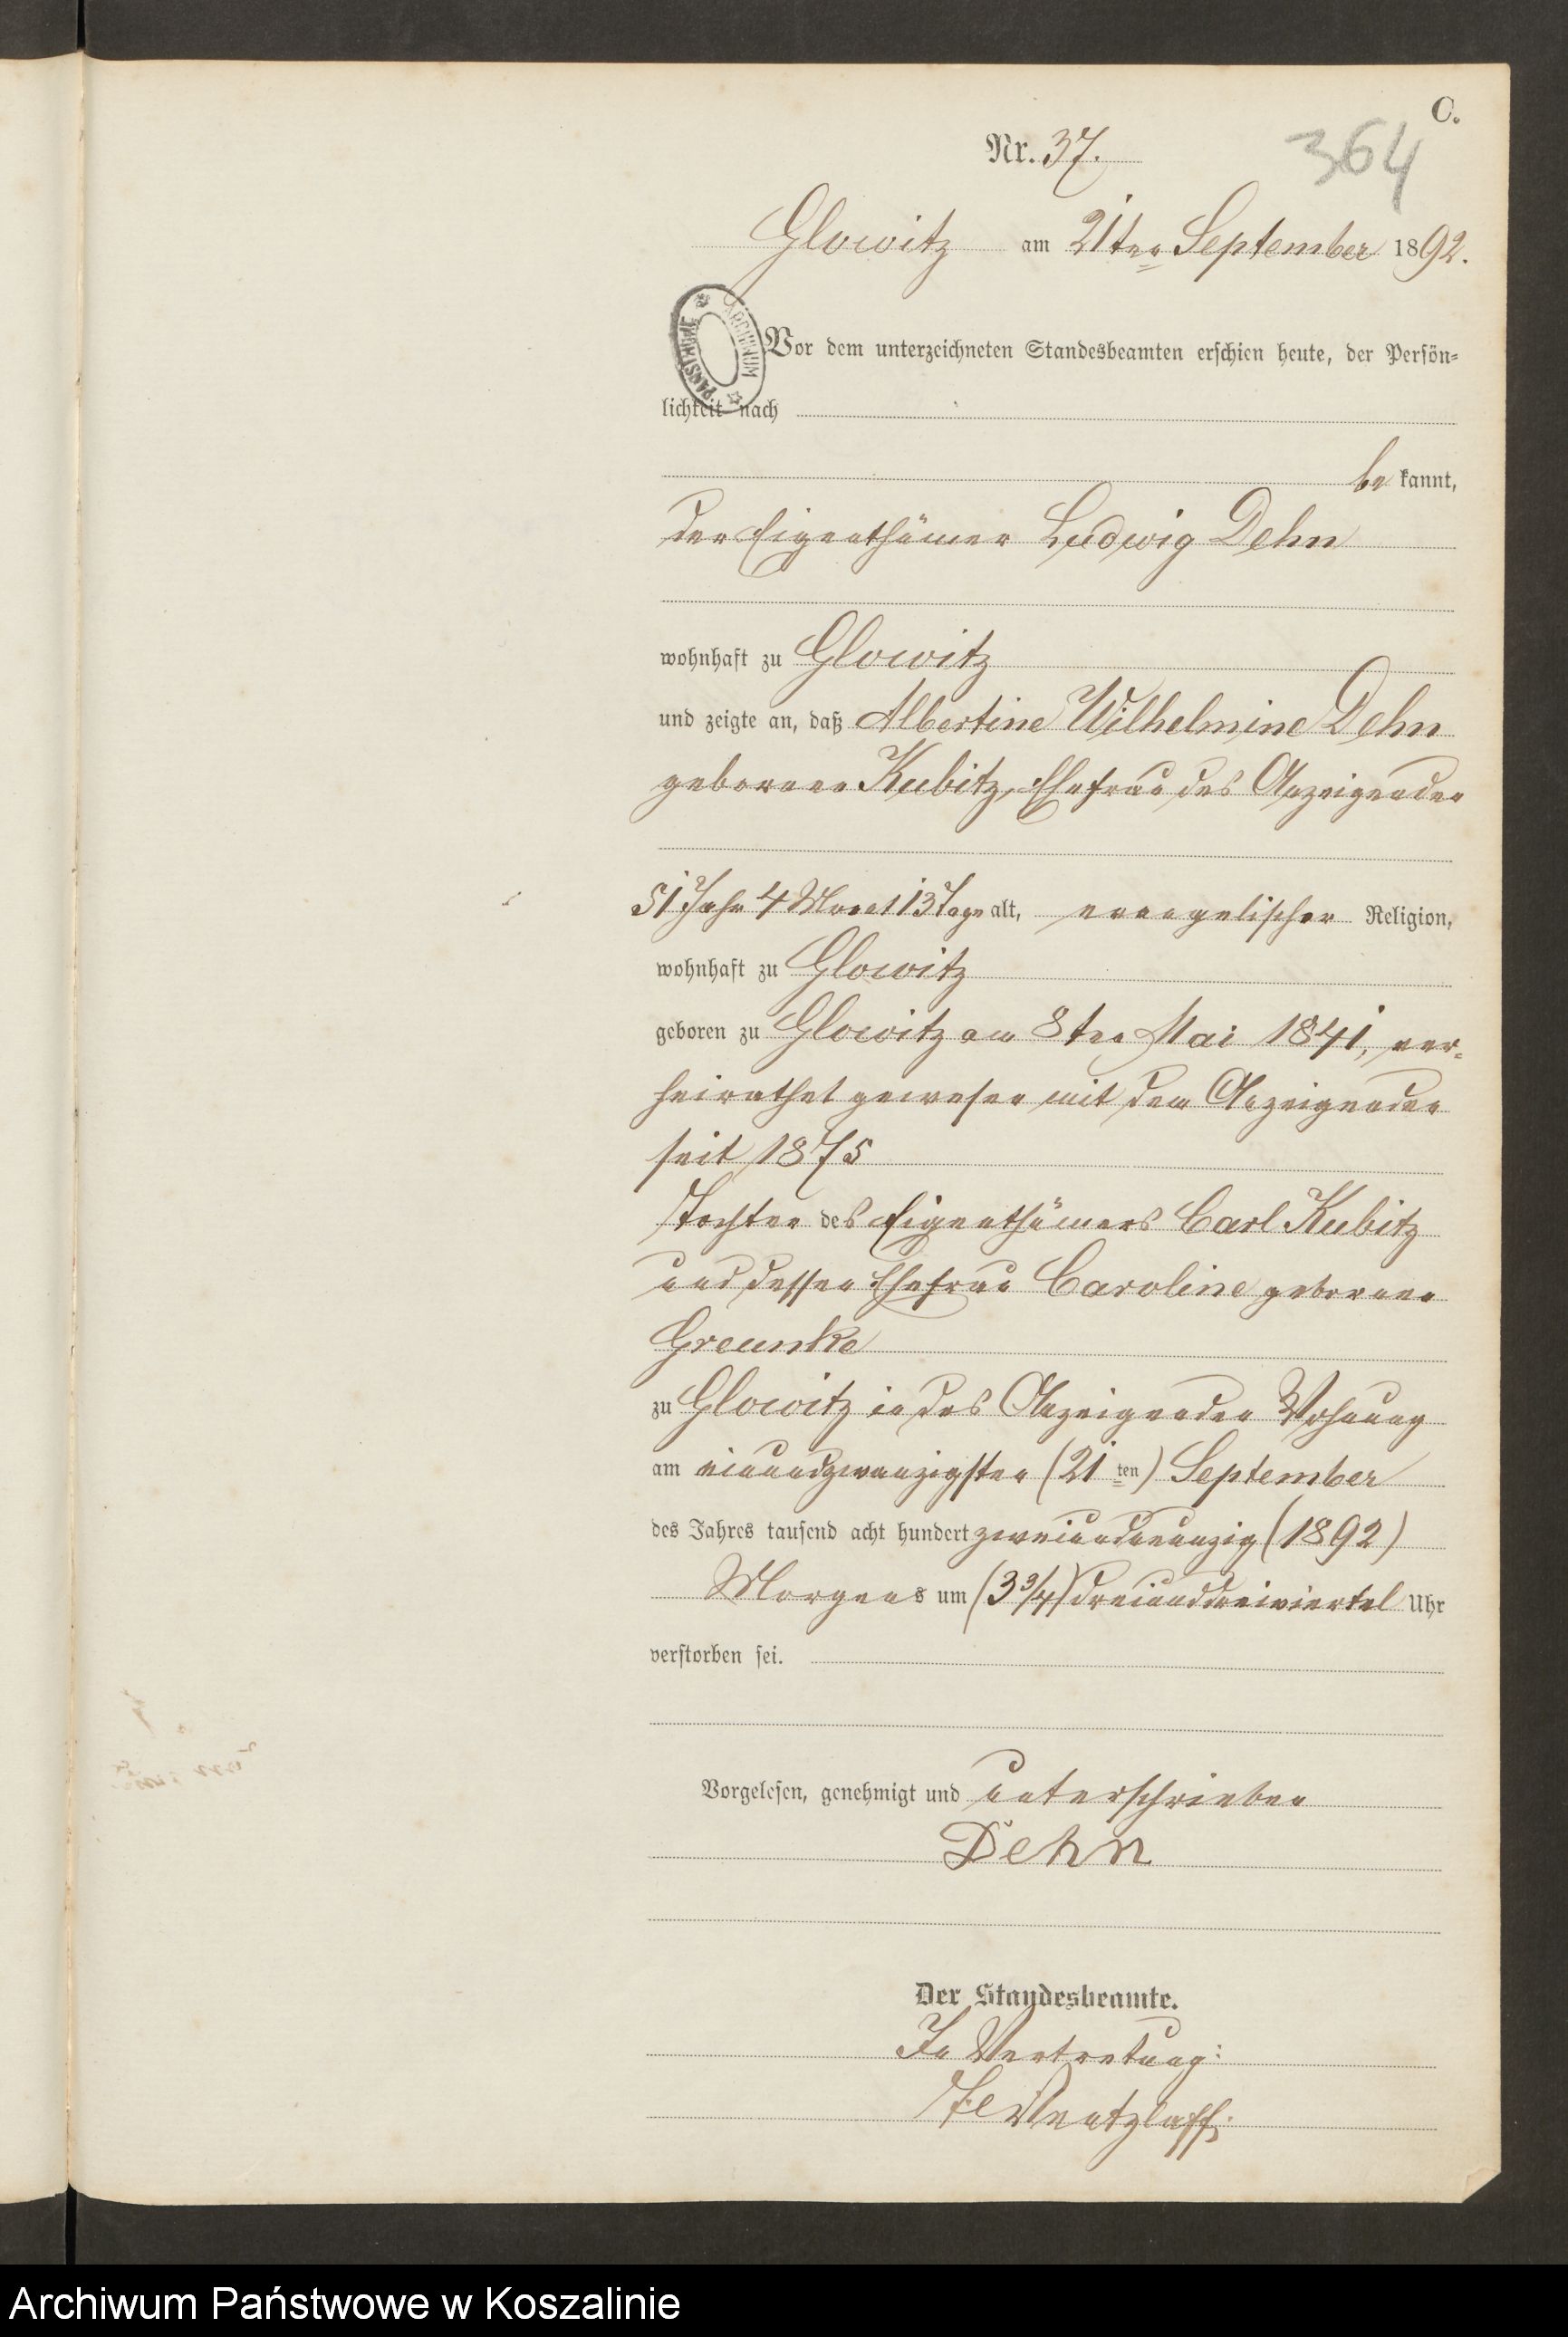 C.
Nr. 37.
364
Glowitz am 21ten September 1892.
ARCHIWUM PAŃSTWOWE
Vor dem unterzeichneten Standesbeamten erschien heute, der Persön-
lichkeit nach
be kannt,
der Eigenthümer Ludwig Dehn
wohnhaft zu Glowitz
und zeigte an, daß Albertine Wilhelmine Dehn
geborene Kubitz, Ehefrau des Anzeigenden
51 Jahr 4 Monat 13 Tage alt, evangelischer Religion,
wohnhaft zu Glowitz
geboren zu Glowitz am 8ten Mai 1841, ver-
heirathet gewesen mit dem Anzeigenden
seit 1875
Tochter des Eigenthümers Carl Kubitz
und dessen Ehefrau Caroline geborene
Greunke
zu Glowitz in des Anzeigenden Wohnung
am einundzwanzigsten (21ten) September
des Jahres tausend acht hundert zweiundneunzig (1892)
Morgens um (3 3/4) dreiunddreiviertel Uhr
verstorben sei.
Vorgelesen, genehmigt und unterschrieben
Dehn
Der Standesbeamte.
In Vertretung:
Wentzlaff.
Archiwum Państwowe w Koszalinie